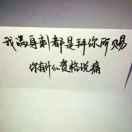 我满身刺都是拜你所赐
你有什么资格说痛